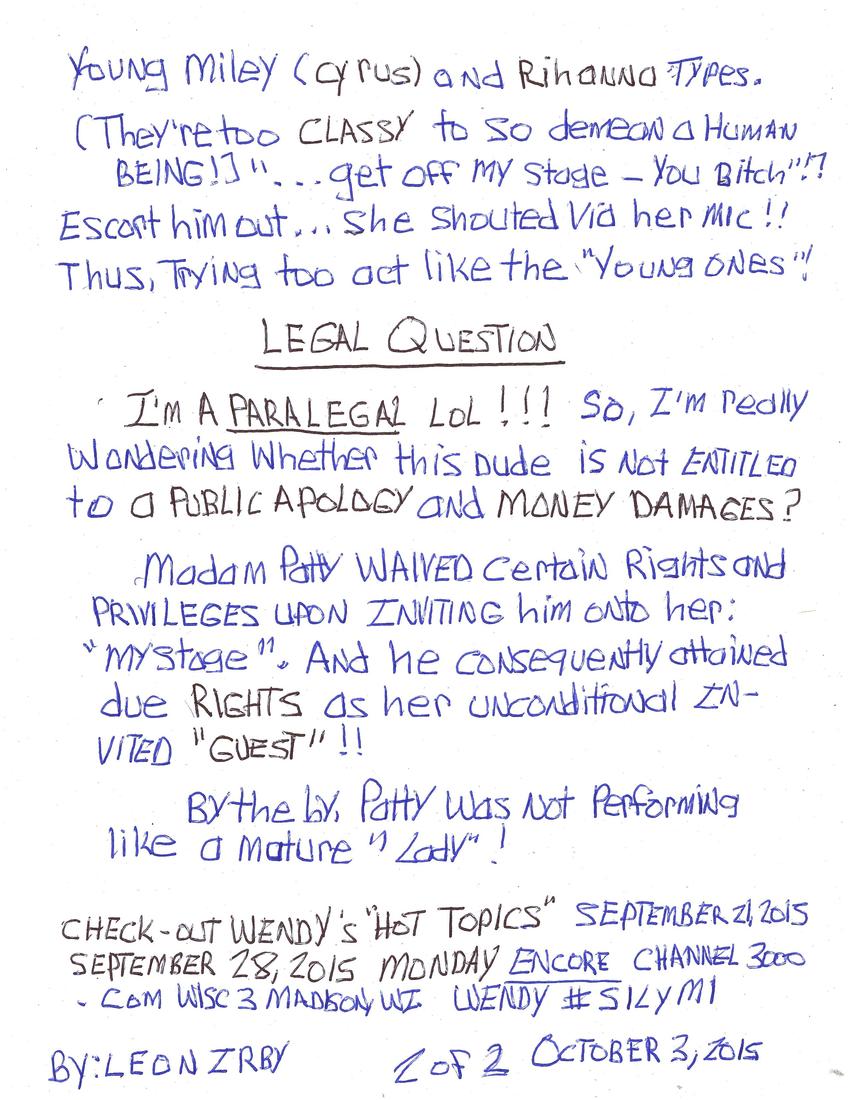 Young Miley (Cyrus) and Rihanna Types.
(They're too CLASSY to so demean a HUMAN
BEING!] "... get off My Stage – You Bitch"!?
Escort him out... She Shouted Via her Mic!!
Thus, Trying too act like the "Young ONES"!
LEGAL QUESTION
I'M A PARALEGAL LOL!!! So, I'm really
Wondering Whether this Dude is Not ENTITLED
to a PUBLIC APOLOGY and MONEY DAMAGES?
Madam Patty WAIVED Certain Rights and
PRIVILEGES UPON INVITING him onto her:
"My Stage". And he CONSEQUENTLY attained
due RIGHTS as her unconditional IN-
VITED "GUEST"!!
By the by, Patty Was Not Performing
like a Mature "Lady"!
CHECK-OUT WENDY'S "HOT TOPICS" SEPTEMBER 21, 2015
SEPTEMBER 28, 2015 MONDAY ENCORE CHANNEL 3000
. COM WISC 3 MADISON, WI WENDY #SILYMI
BY: LEON IRBY 2 of 2 OCTOBER 3, 2015